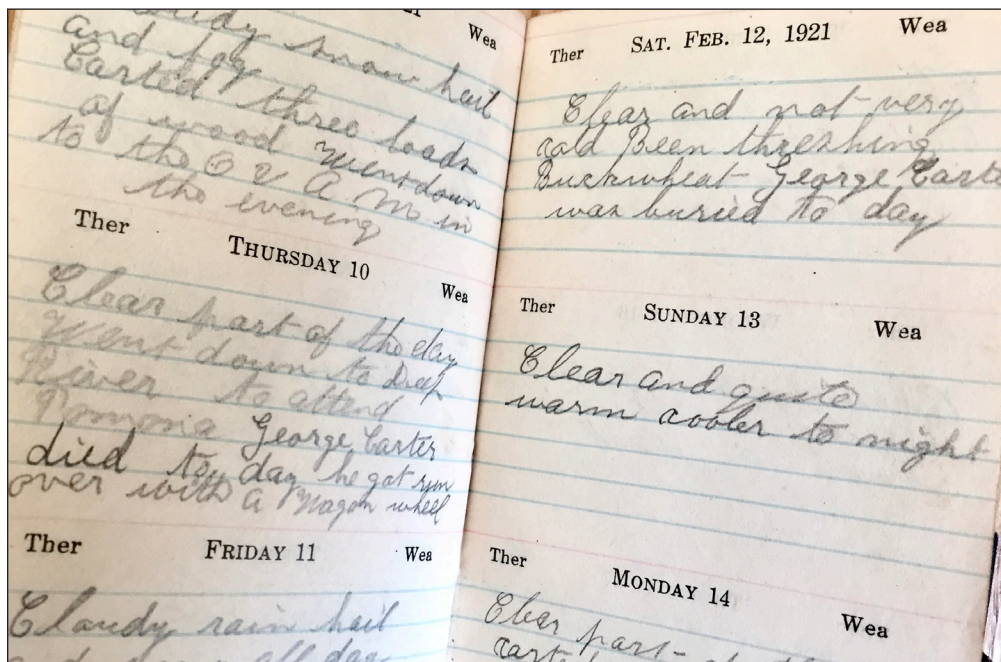 Cloudy snow hail
and fog
Carted three loads
of wood Went down
to the O V A M in
the evening
Wea
Ther THURSDAY 10 Wea
Clear part of the day
Went down to Deep
River to attend
Pomona George Carter
died to day he got run
over with a Wagon wheel
Ther FRIDAY 11 Wea
Cloudy rain hail
all day
Ther SAT. FEB. 12, 1921 Wea
Clear and not very
cold Been threshing
Buckwheat George Carte
was buried to day
Ther SUNDAY 13 Wea
Clear and quite
warm cooler to night
Ther MONDAY 14 Wea
Clear part